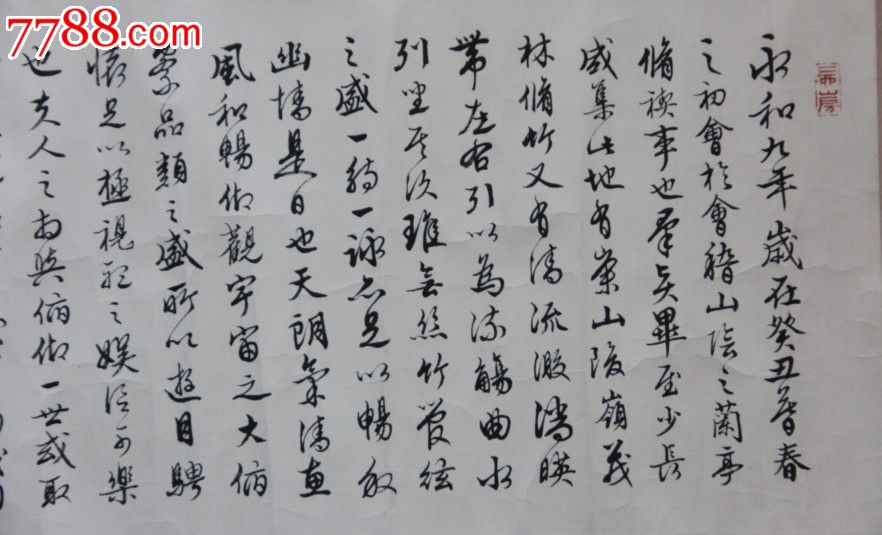 7788.com
永和九年歲在癸丑暮春
之初會於會稽山陰之蘭亭
脩禊事也羣賢畢至少長
咸集此地有崇山峻嶺茂
林脩竹又有清流激湍暎
帶左右引以為流觴曲水
列坐其次雖無絲竹管絃
之盛一觴一詠亦足以暢敘
幽情是日也天朗氣清惠
風和暢仰觀宇宙之大俯
察品類之盛所以遊目騁
懷足以極視聽之娛信可樂
也夫人之相與俯仰一世或取